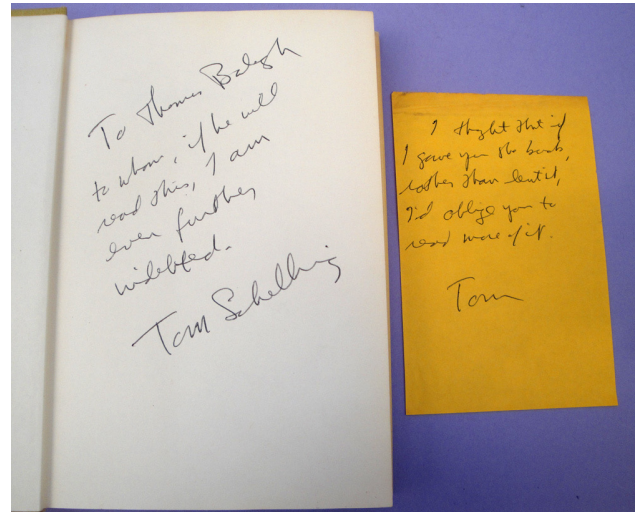 To Thomas Balogh
to whom, if he will
read this, I am
even further
indebted.
Tom Schelling
I thought that if
I gave you the book,
rather than lent it,
I'd oblige you to
read more of it.
Tom